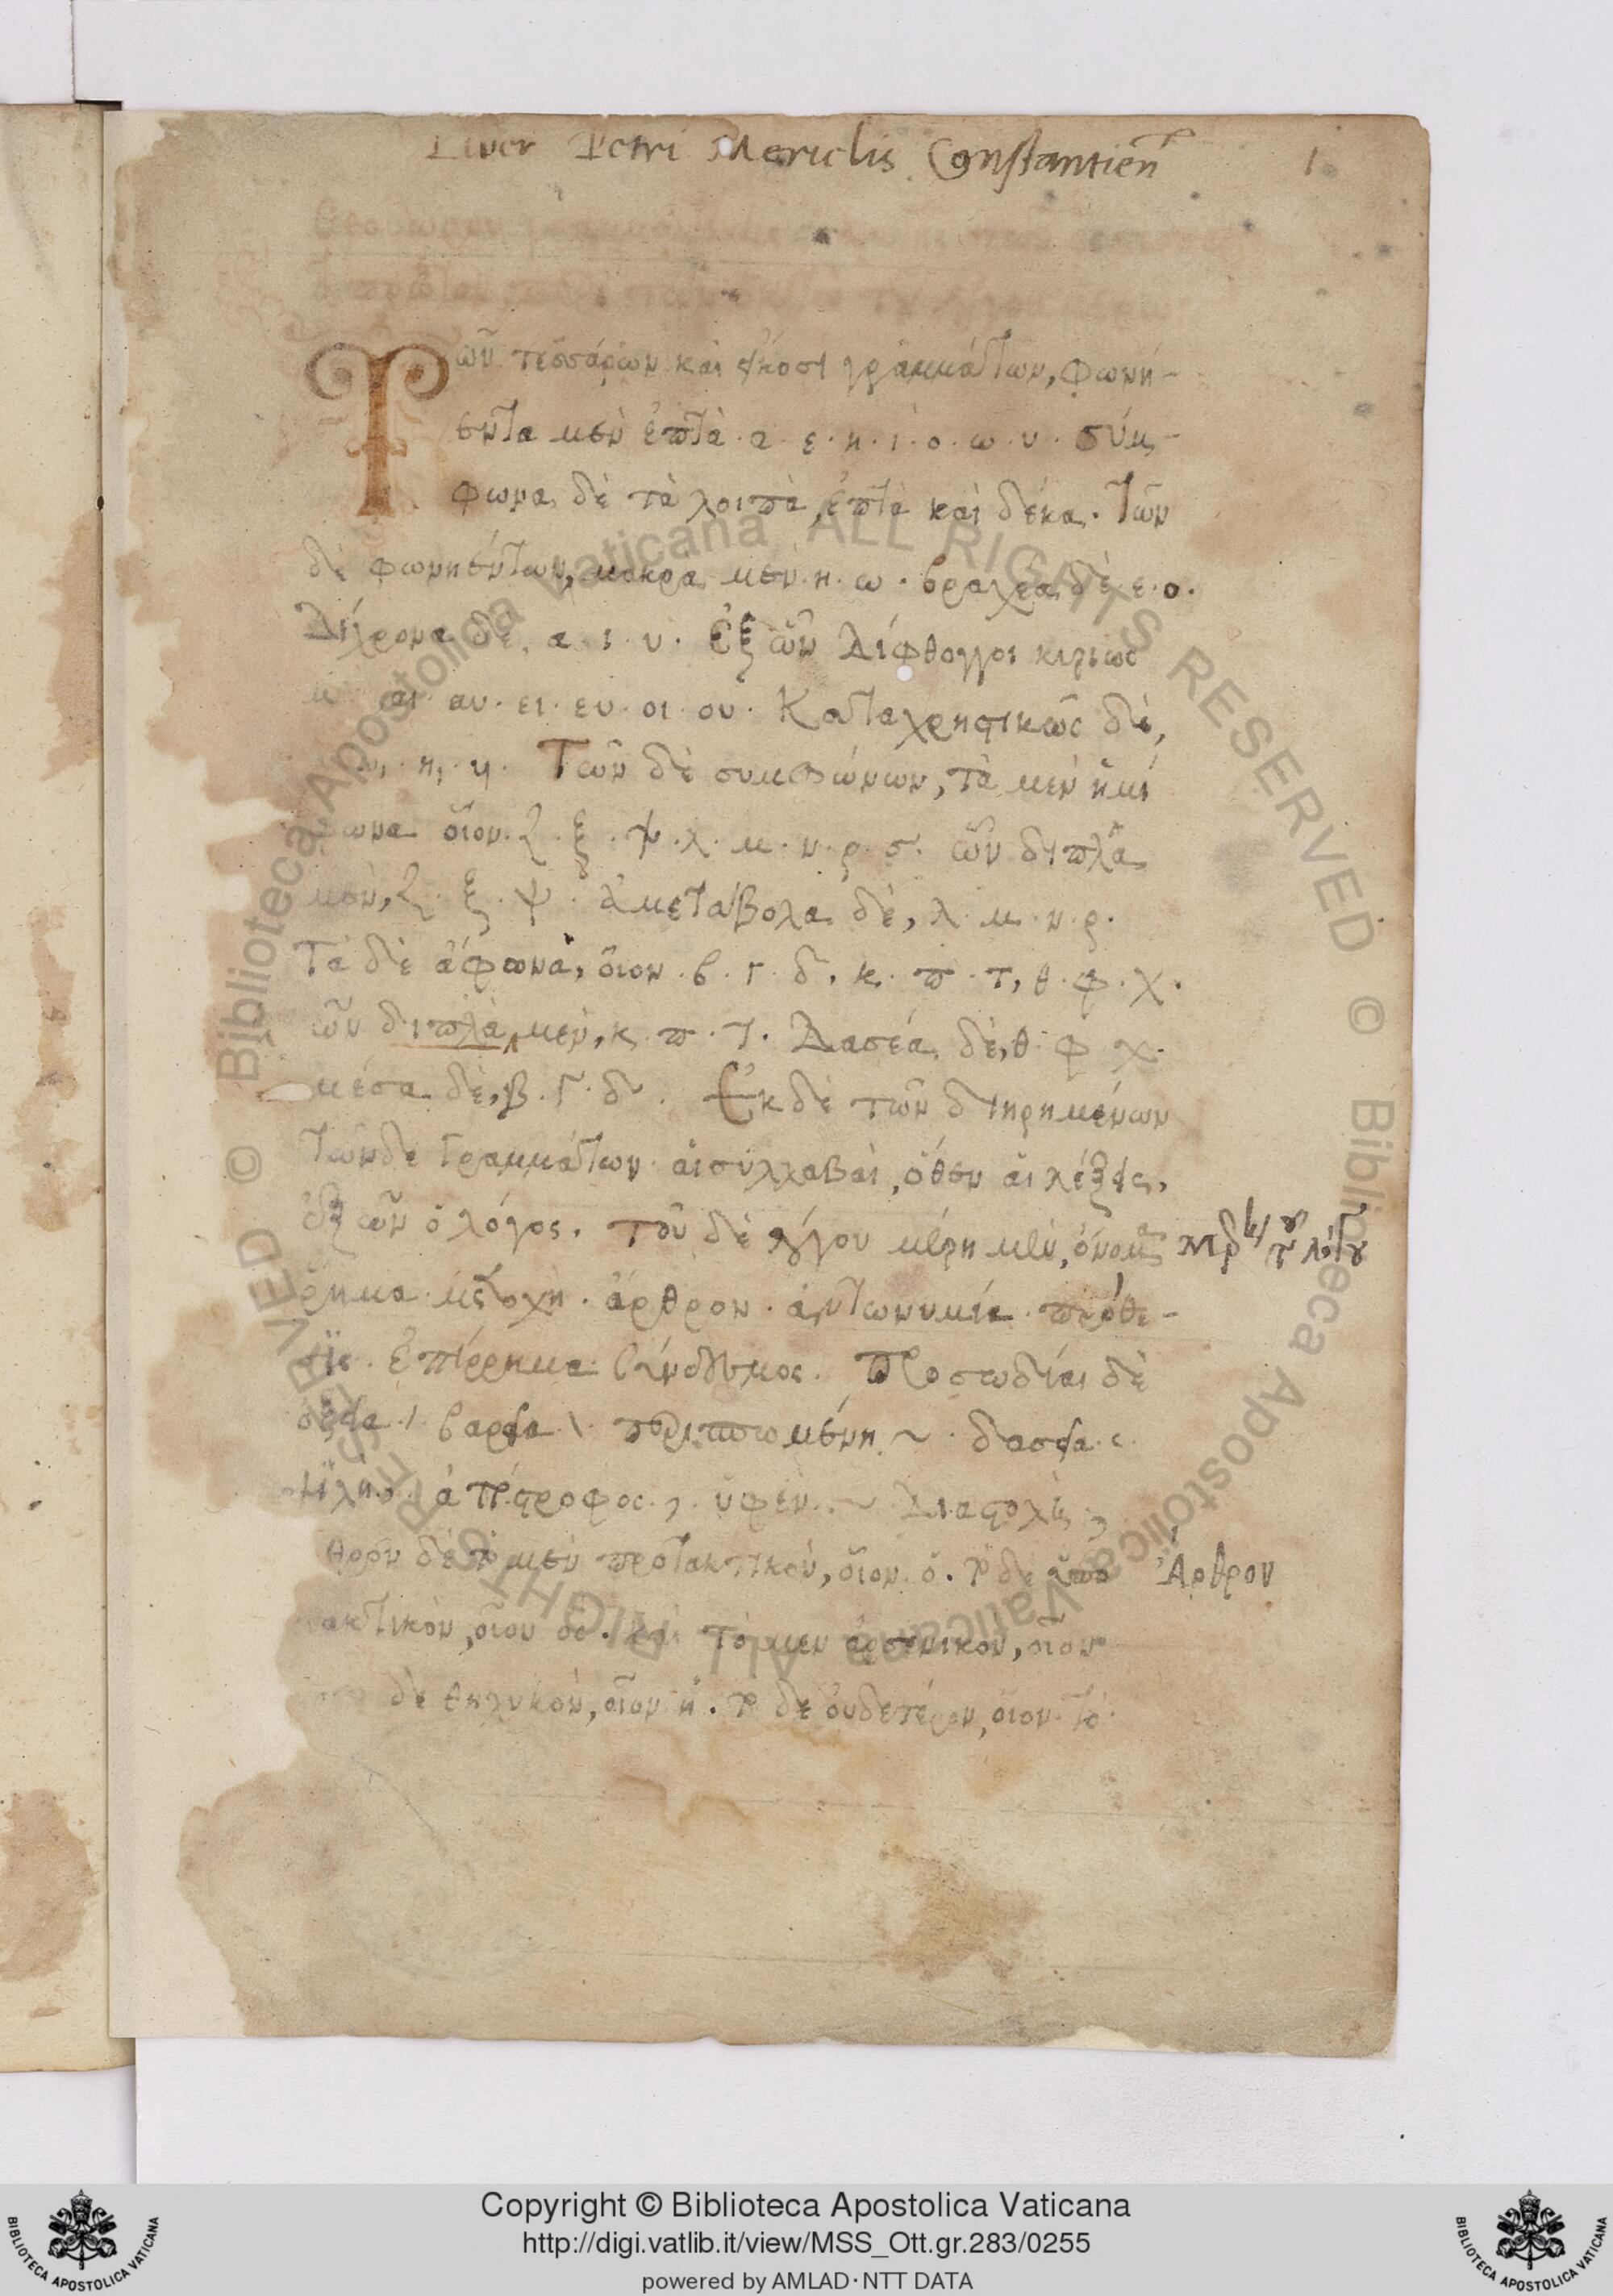 Liber Petri Mericlis Constantien̄
1
Τῶν τεσσάρων καὶ εἴκοσι γραμμάτων, φωνή-
εντα μὲν ἑπτὰ · α · ε · η · ι · ο · ω · υ · σύμ-
φωνα δὲ τὰ λοιπὰ ἑπτὰ καὶ δέκα · τῶν
δὲ φωνηέντων, μακρὰ μὲν · η · ω · βραχέα δὲ · ε · ο ·
Δίχρονα δὲ, α · ι · υ · Ἐξ ὧν Δίφθογγοι κυρίως
αι · αυ · ει · ευ · οι · ου · Καταχρηστικῶς δὲ,
ηι · υι · Τῶν δὲ συμφώνων, τὰ μὲν ἡμί
φωνα οἷον · ζ · ξ · ψ · λ · μ · ν · ρ · σ · ὧν διπλᾶ
μὲν, ζ · ξ · ψ · ἀμετάβολα δὲ, λ · μ · ν · ρ ·
Τὰ δὲ ἄφωνα, οἷον · β · γ · δ · κ · π · τ, θ · φ · χ ·
ὧν διπλὰ μὲν, κ · π · τ · Δασέα δὲ, θ · φ · χ ·
μέσα δὲ, β · γ · δ · Ἐκ δὲ τῶν διηρημένων
τῶνδε γραμμάτων αἱ συλλαβαὶ, ὅθεν αἱ λέξεις,
ἐξ ὧν ὁ λόγος · τοῦ δὲ λόγου μέρη μὲν, ὄνομα
ῥῆμα · μετοχὴ · ἄρθρον · ἀντωνυμία · πρόθε-
σις · ἐπίρρημα · σύνδεσμος · Προσωδίαι δὲ
ὀξεῖα / βαρεῖα \ περισπωμένη ~ · δασεῖα ·
ψιλὴ · ἀπόστροφος · ὑφὲν · Διαστολὴ ,
θρον δὲ τὸ μὲν προτακτικὸν, οἷον ὁ · τὸ δὲ ὑπο
Ἄρθρον
τακτικὸν, οἷον ὃς · καὶ τὸ μὲν ἀρσενικὸν, οἷον
δὲ θηλυκὸν, οἷον ἡ · τὸ δὲ οὐδετέρον, οἷον τὸ ·
Copyright © Biblioteca Apostolica Vaticana
http://digi.vatlib.it/view/MSS_Ott.gr.283/0255
powered by AMLAD · NTT DATA
BIBLIOTECA APOSTOLICA VATICANA
BIBLIOTECA APOSTOLICA VATICANA
© Biblioteca Apostolica Vaticana ALL RIGHTS RESERVED © Biblioteca Apostolica Vaticana ALL RIGHTS RESERVED